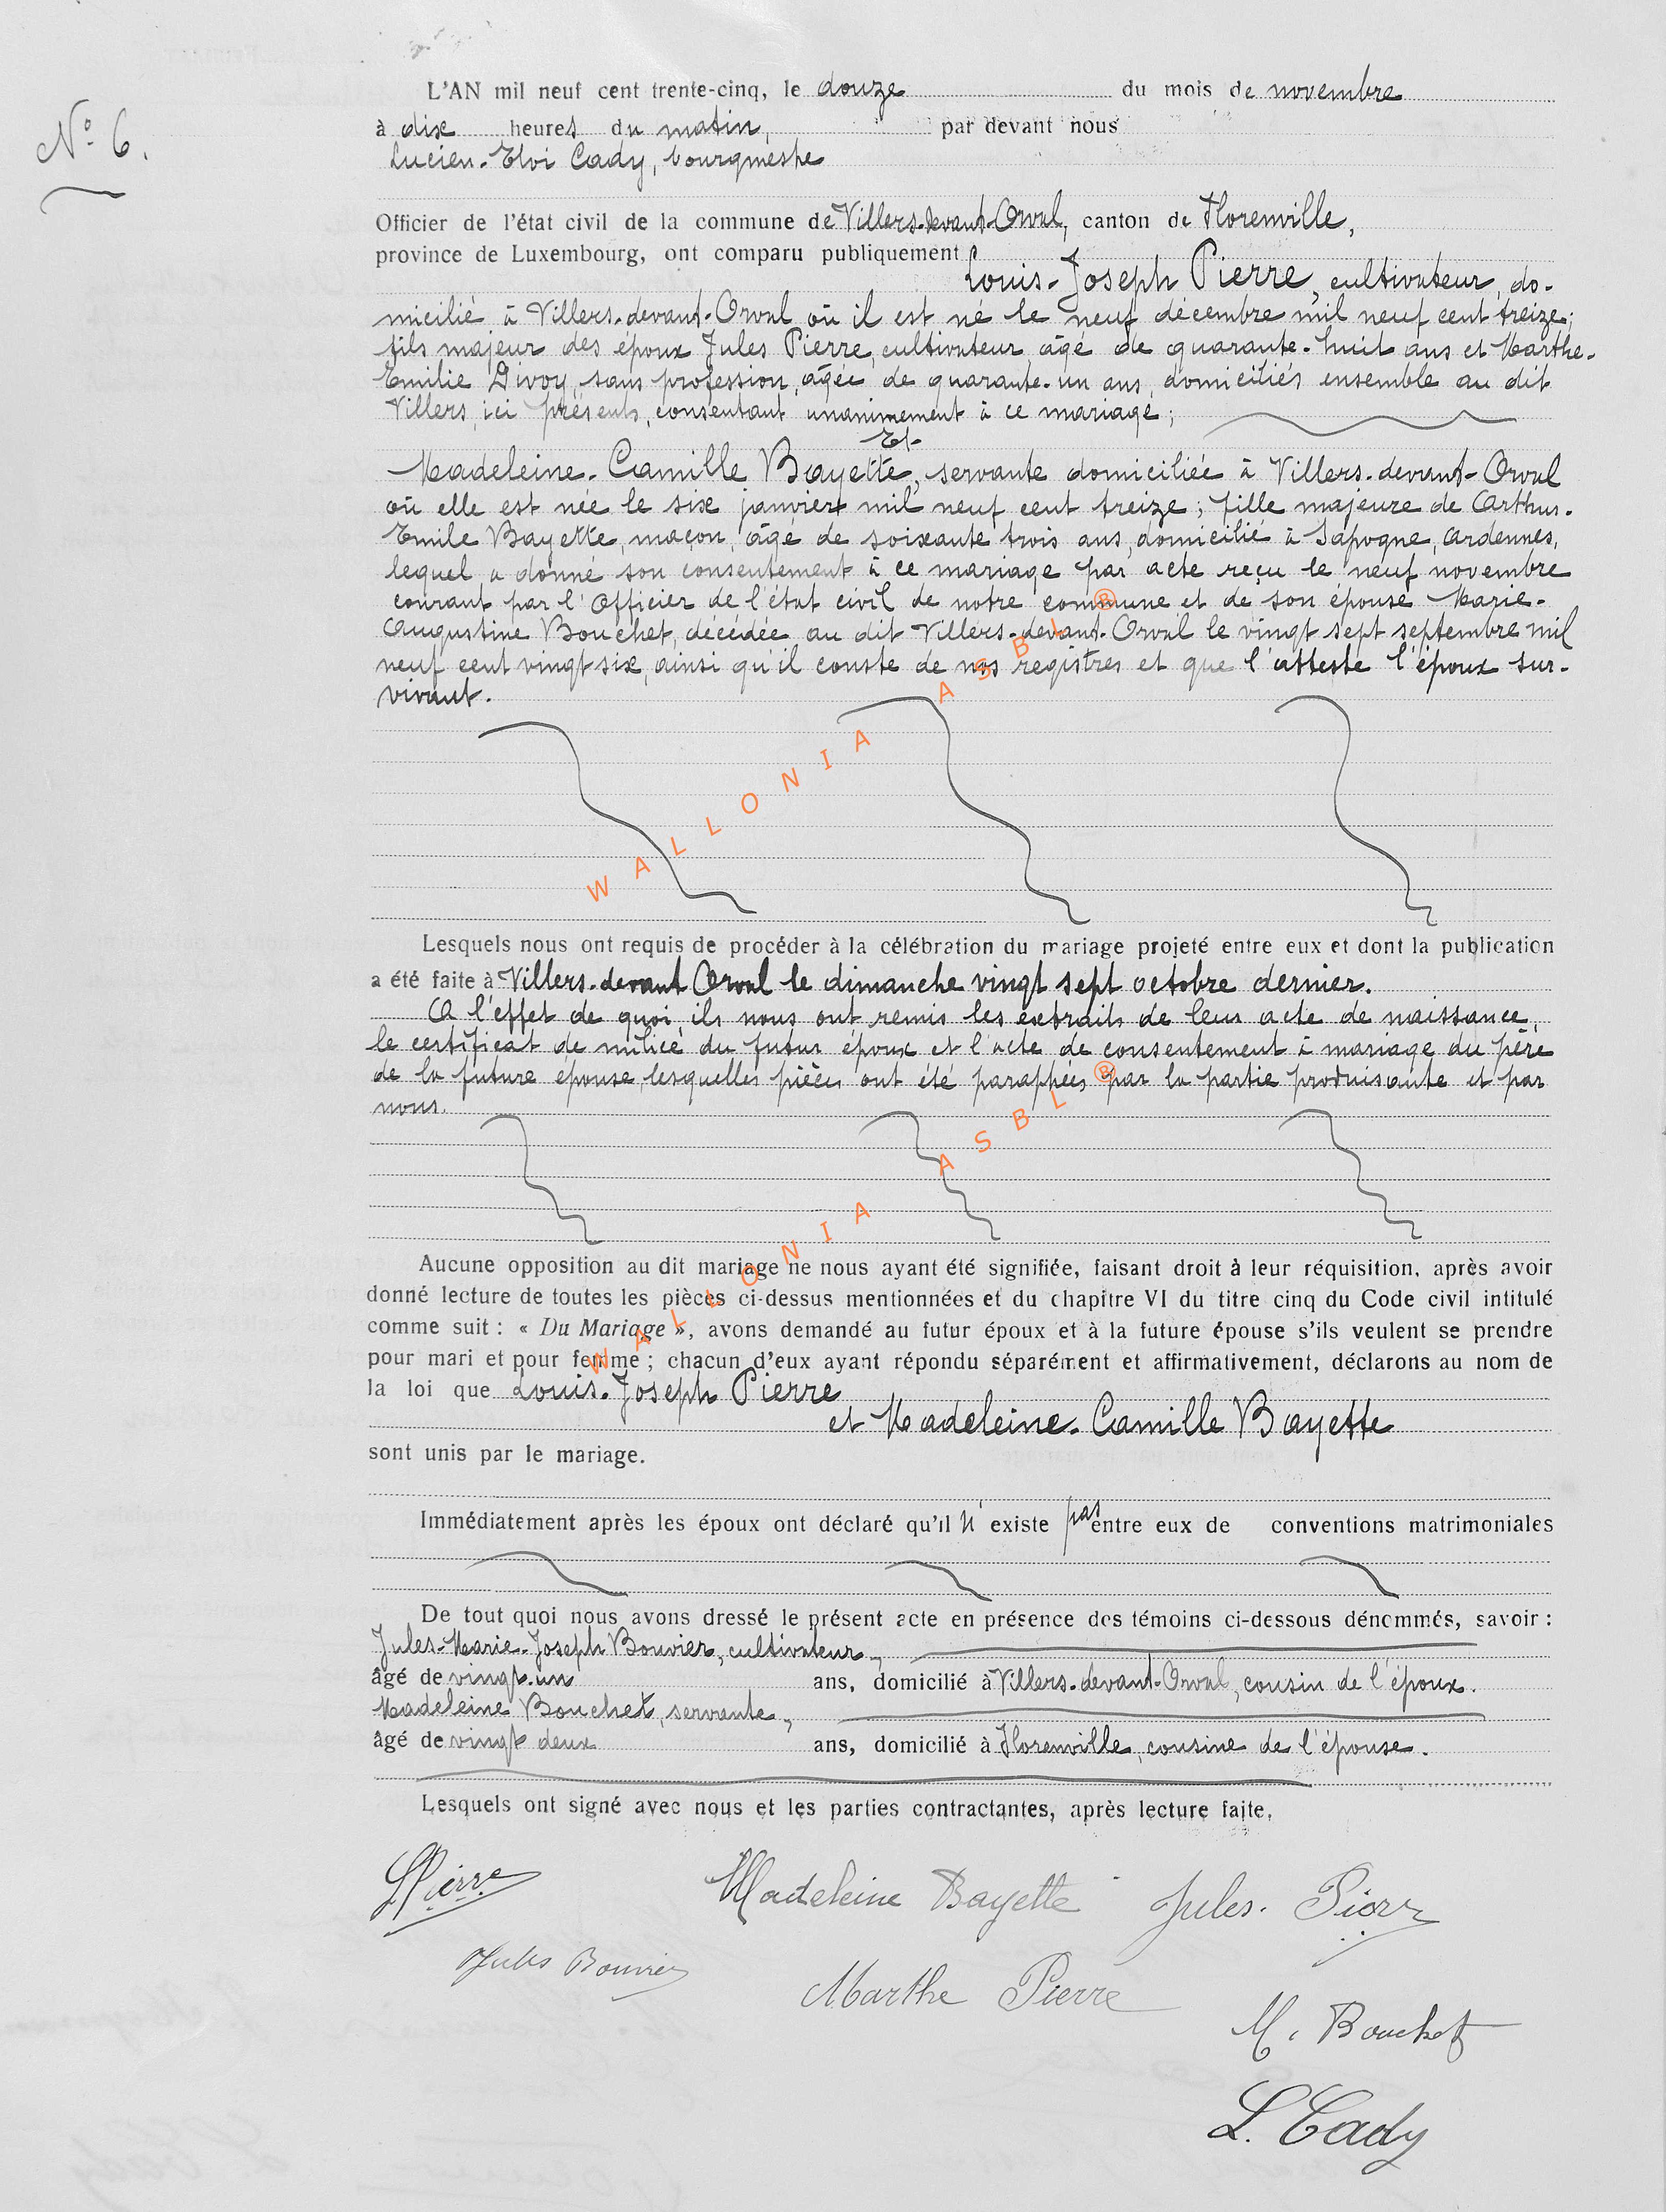 N° 6.
L'AN mil neuf cent trente-cinq, le douze du mois de novembre
à dix heures du matin, par devant nous
Lucien-Eloi Cady, bourgmestre
Officier de l'état civil de la commune de Villers-devant-Orval, canton de Florenville,
province de Luxembourg, ont comparu publiquement
Louis-Joseph Pierre, cultivateur, do-
micilié à Villers-devant-Orval où il est né le neuf décembre mil neuf cent treize;
fils majeur des époux Jules Pierre, cultivateur, âgé de quarante-huit ans et Marthe-
Emilie Divoy, sans profession, âgée de quarante-un ans, domiciliés ensemble au dit
Villers, ici présents, consentant unanimement à ce mariage;
Et
Madeleine-Camille Bayette, servante domiciliée à Villers-devant-Orval
où elle est née le six janvier mil neuf cent treize; fille majeure de Arthur-
Emile Bayette, maçon, âgé de soixante trois ans, domicilié à Sapogne, Ardennes,
lequel a donné son consentement à ce mariage par acte reçu le neuf novembre
courant par l'Officier de l'état civil de notre commune et de son épouse Marie-
Augustine Bouchet, décédée au dit Villers-devant-Orval le vingt sept septembre mil
neuf cent vingt six, ainsi qu'il conste de nos registres et que l'atteste l'époux sur-
vivant.
WALLONIA ASBL ®
Lesquels nous ont requis de procéder à la célébration du mariage projeté entre eux et dont la publication
a été faite à Villers-devant Orval le dimanche vingt sept octobre dernier.
A l'effet de quoi, ils nous ont remis les extraits de leur acte de naissance,
le certificat de milice du futur époux et l'acte de consentement à mariage du père
de la future épouse, lesquelles pièces ont été paraphées par la partie produisante et par
nous.
WALLONIA ASBL ®
Aucune opposition au dit mariage ne nous ayant été signifiée, faisant droit à leur réquisition, après avoir
donné lecture de toutes les pièces ci-dessus mentionnées et du chapitre VI du titre cinq du Code civil intitulé
comme suit : « Du Mariage », avons demandé au futur époux et à la future épouse s'ils veulent se prendre
pour mari et pour femme ; chacun d'eux ayant répondu séparément et affirmativement, déclarons au nom de
la loi que Louis-Joseph Pierre
et Madeleine-Camille Bayette
sont unis par le mariage.
Immédiatement après les époux ont déclaré qu'il n'existe pas entre eux de conventions matrimoniales
De tout quoi nous avons dressé le présent acte en présence des témoins ci-dessous dénommés, savoir :
Jules-Marie-Joseph Bouvier, cultivateur,
âgé de vingt-un ans, domicilié à Villers-devant-Orval, cousin de l'époux.
Madeleine Bouchet, servante,
âgé de vingt deux ans, domicilié à Florenville, cousine de l'épouse.
Lesquels ont signé avec nous et les parties contractantes, après lecture faite.
LPierre Madeleine Bayette Jules Pierre
Jules Bouvier Marthe Pierre
M. Bouchet
L. Cady